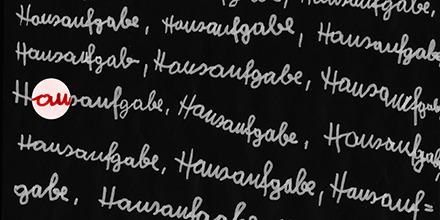 Hausaufgabe,
Hausaufgabe, Hausaufgabe, Hausaufgab
Hausaufgab, Hausaufgabe, Hausaufgab
Hausaufgabe, Hausaufgabe, Hausaufgab
Hausaufgabe, Hausaufgabe, Hausauf=
gabe, Hausaufgabe